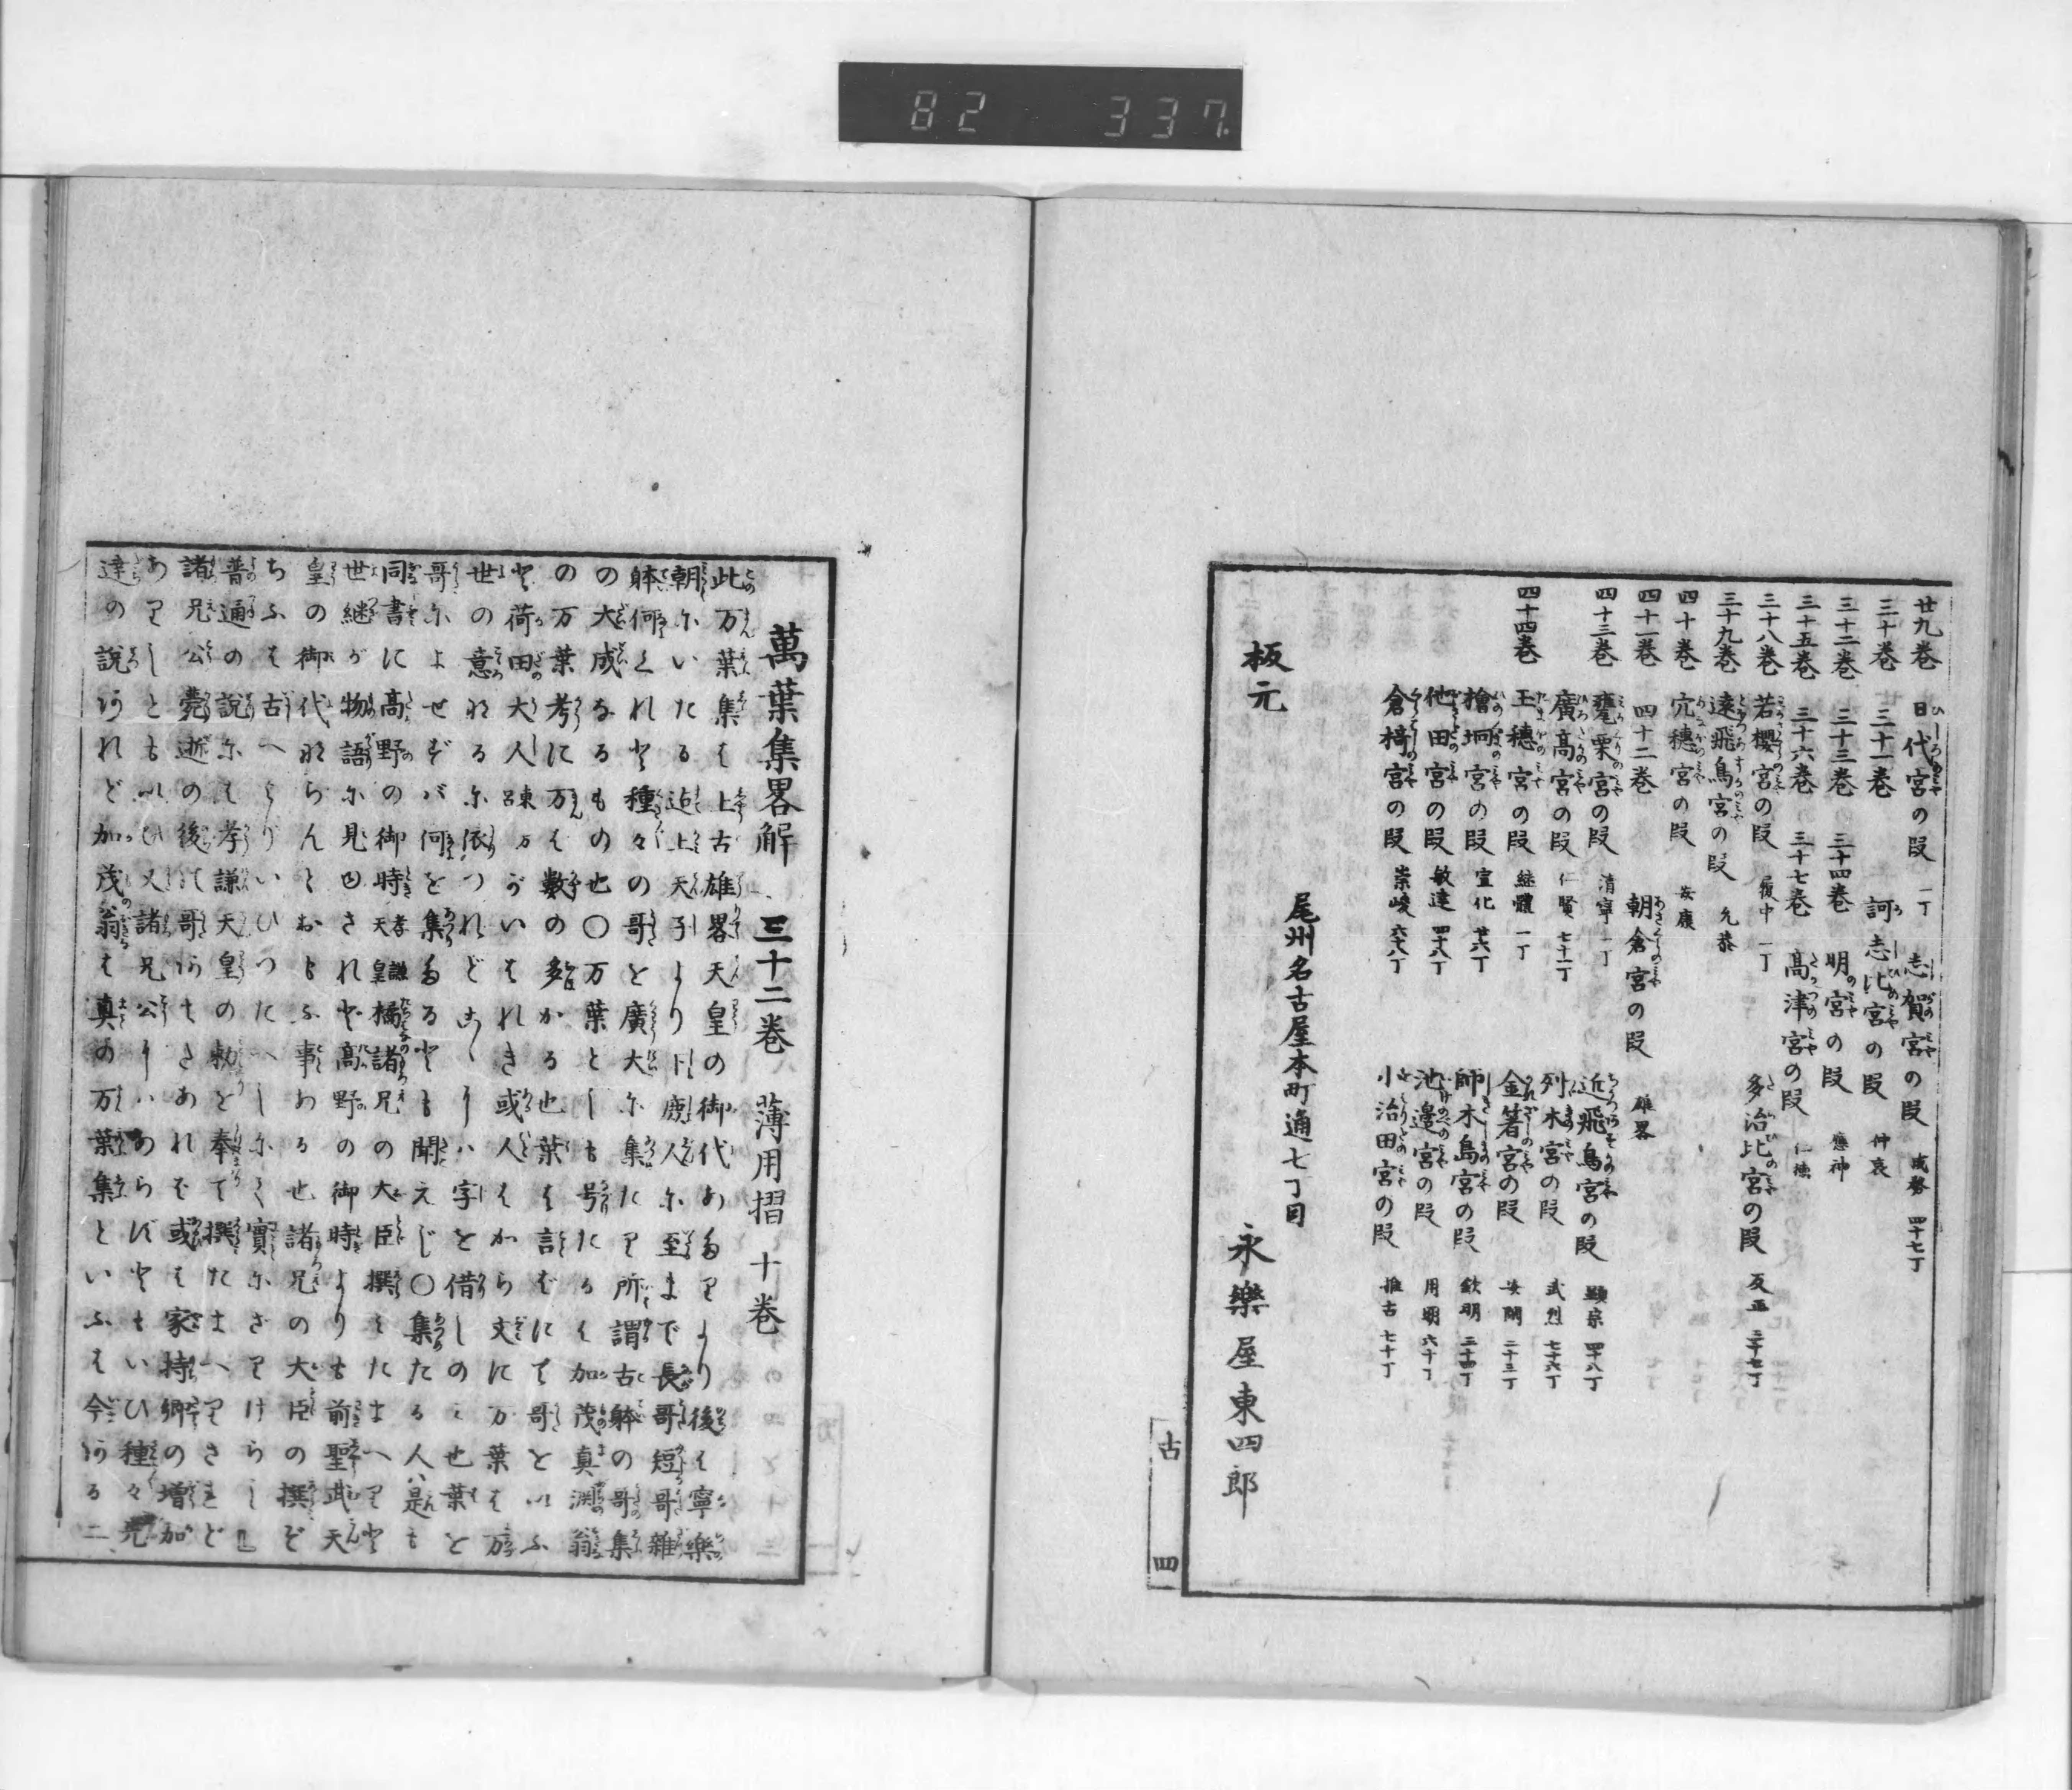 82 337
廿九巻 日代宮の段 一丁 志賀宮の段 成務 四十七丁
三十巻 三十一巻 訶志比宮の段 仲哀
三十二巻 三十三巻 三十四巻 明宮の段 應神
三十五巻 三十六巻 三十七巻 髙津宮の段 仁徳
三十八巻 若櫻宮の段 履中 一丁 多治比宮の段 反正 三十七丁
三十九巻 遠飛鳥宮の段 允恭
四十巻 穴穗宮の段 安康
四十一巻 四十二巻 朝倉宮の段 雄畧
四十三巻 甕栗宮の段 清寧 一丁 近飛鳥宮の段 顯宗 四十八丁
廣髙宮の段 仁賢 七十一丁 列木宮の段 武烈 七十六丁
四十四巻 玉穗宮の段 継體 一丁 金箸宮の段 安閑 二十三丁
檜坰宮の段 宣化 廿六丁 師木島宮の段 欽明 三十四丁
他田宮の段 敏達 四十八丁 池邊宮の段 用明 六十丁
倉椅宮の段 崇峻 六十八丁 小治田宮の段 推古 七十丁
尾州名古屋本町通七丁目
板元 永樂屋東四郎
古 四
萬葉集畧解 三十二巻 薄用摺 十巻
此万葉集は上古雄畧天皇の御代のあたりより後は寧樂
朝にいたる迠上天子より下鹿人に至まで長哥短哥雜
躰何くれと種々の哥を廣大に集たり所謂古躰の哥集
の大成なるもの也〇万葉としも号たるは加茂真渕翁
の万葉考に万は数の多かる也葉は言ばにて哥といふ
と荷田大人東万呂がいはれき或人はから文に万葉は万
世の意なるに依つれどこゝりハ字を借しのミ也葉と
哥によせずバ何を集たるとも聞えじ〇集たる人ハ是も
同書に髙野の御時孝謙天皇橘諸兄の大臣撰はたまへりと
世継が物語に見申されど髙野の御時よりも前聖武天
皇の御代ならんとおもふ事わる也諸兄の大臣の撰ぞ
ちふは古へよりいひつたへしにて實にさりけらし
普通の説には孝謙天皇の勅を奉て撰たまへりされど
諸兄公薨逝の後の哥ありてもさあれば或は家持卿の増加
ありしともいひ又諸兄公よりハあらずともいひ種々先
達の説あれど加茂翁は真の万葉集といふは今ある二